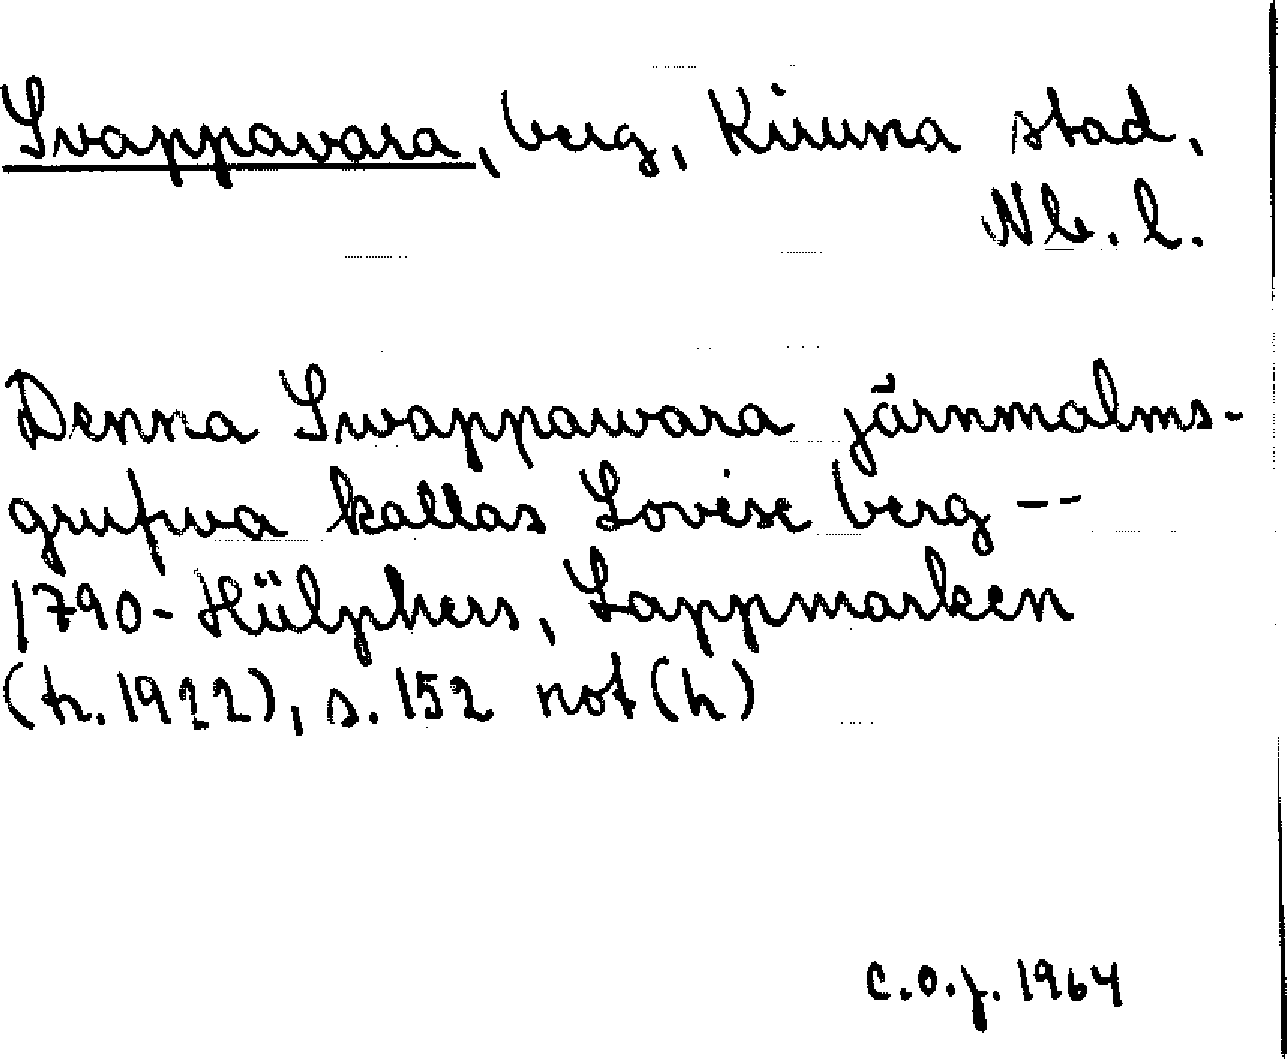 Svappavara, berg, Kiruna stad,
Nb. l.
Denna Swappawara järnmalms-
grufwa kallas Lovise berg --
1790- Hülphers, Lappmarken
(tr. 1922), s. 152 not (h)
C.O.J. 1964